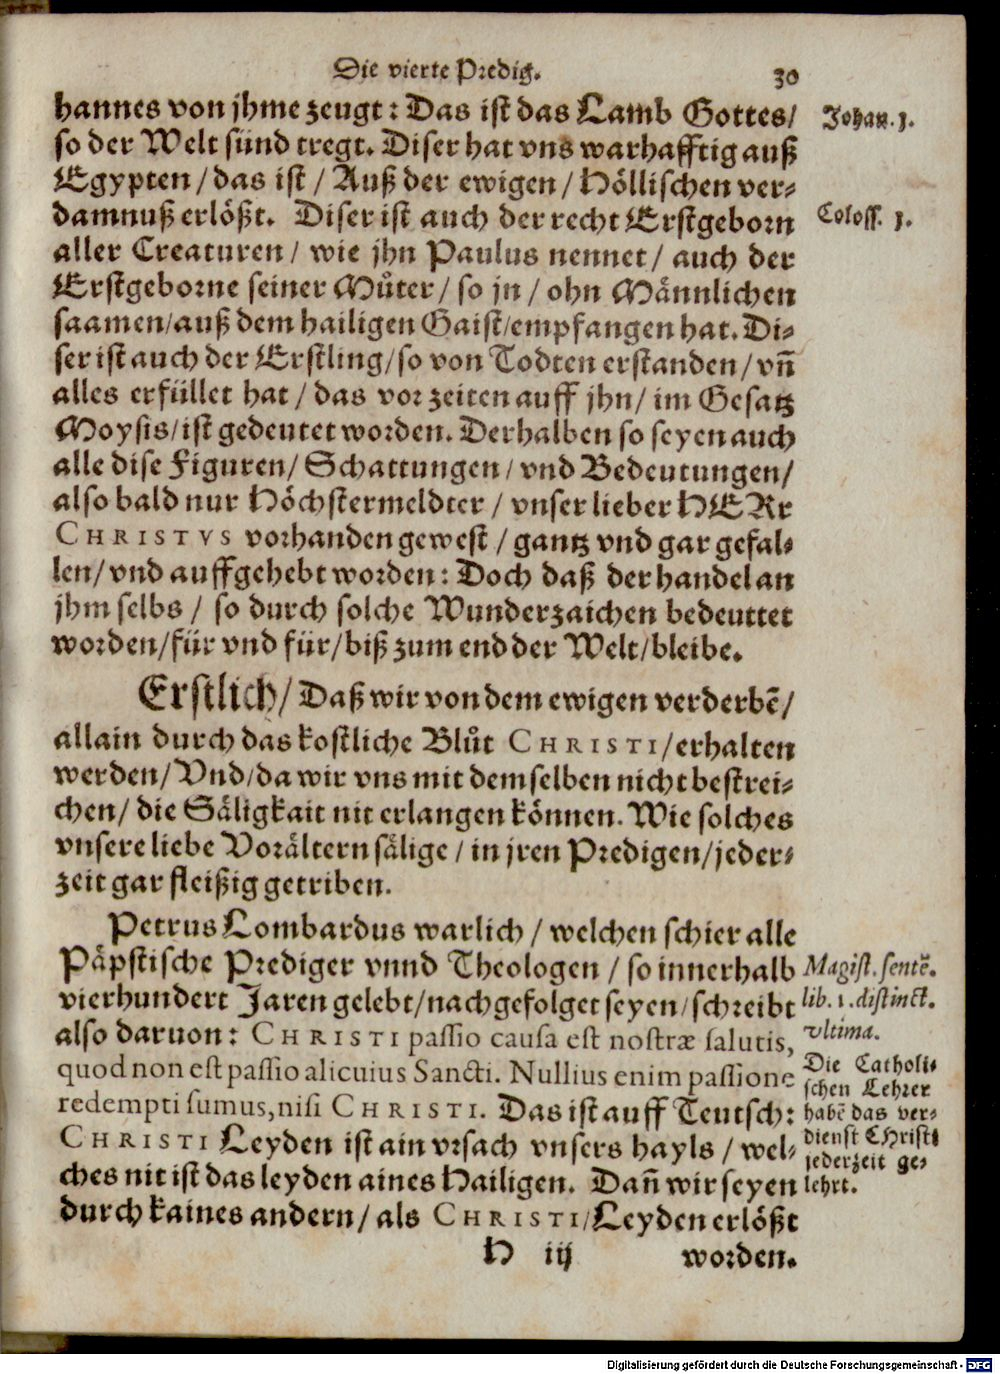 Die vierte Predig. 30
hannes von jhme zeugt: Das ist das Lamb Gottes/
so der Welt sünd tregt. Diser hat vns warhafftig auß
Egypten/das ist/ Auß der ewigen/ Höllischen ver-
damnuß erlößt. Diser ist auch der recht Erstgeborn
aller Creaturen/ wie jhn Paulus nennet/ auch der
Erstgeborne seiner Můter/ so jn/ ohn Männlichen
saamen/auß dem hailigen Gaist/empfangen hat. Di-
ser ist auch der Erstling/so von Todten erstanden/ vñ
alles erfüllet hat/ das vor zeiten auff jhn/ im Gesatz
Moysis/ist gedeutet worden. Derhalben so seyen auch
alle dise Figuren/ Schattungen/ vnd Bedeutungen/
also bald nur Höchstermeldter/ vnser lieber HERr
CHRISTVS vorhanden gewest/ gantz vnd gar gefal-
len/ vnd auffgehebt worden: Doch daß der handel an
jhm selbs/ so durch solche Wunderzaichen bedeuttet
worden/für vnd für/biß zum end der Welt/bleibe.
Erstlich/ Daß wir von dem ewigen verderbẽ/
allain durch das kostliche Blůt CHRISTI/erhalten
werden/ Vnd/da wir vns mit demselben nicht bestrei-
chen/ die Säligkait nit erlangen können. Wie solches
vnsere liebe Vorältern sälige/ in jren Predigen/jeder-
zeit gar fleißig getriben.
Petrus Lombardus warlich/ welchen schier alle
Päpstische Prediger vnnd Theologen/ so innerhalb
vierhundert Jaren gelebt/nachgefolget seyen/schreibt
also daruon: CHRISTI passio causa est nostræ salutis,
quod non est passio alicuius Sancti. Nullius enim passione
redempti sumus, nisi CHRISTI. Das ist auff Teutsch:
CHRISTI Leyden ist ain vrsach vnsers hayls/ wel-
ches nit ist das leyden aines Hailigen. Dañ wir seyen
durch kaines andern/ als CHRISTI/Leyden erlößt
H iij worden.
Johan. 1.
Coloss. 1.
Magist. sentẽ.
lib. 1. distinct.
vltima.
Die Catholi-
schen Lehrer
habẽ das ver-
dienst CHristi
jederzeit ge-
lehrt.
Digitalisierung gefördert durch die Deutsche Forschungsgemeinschaft - DFG